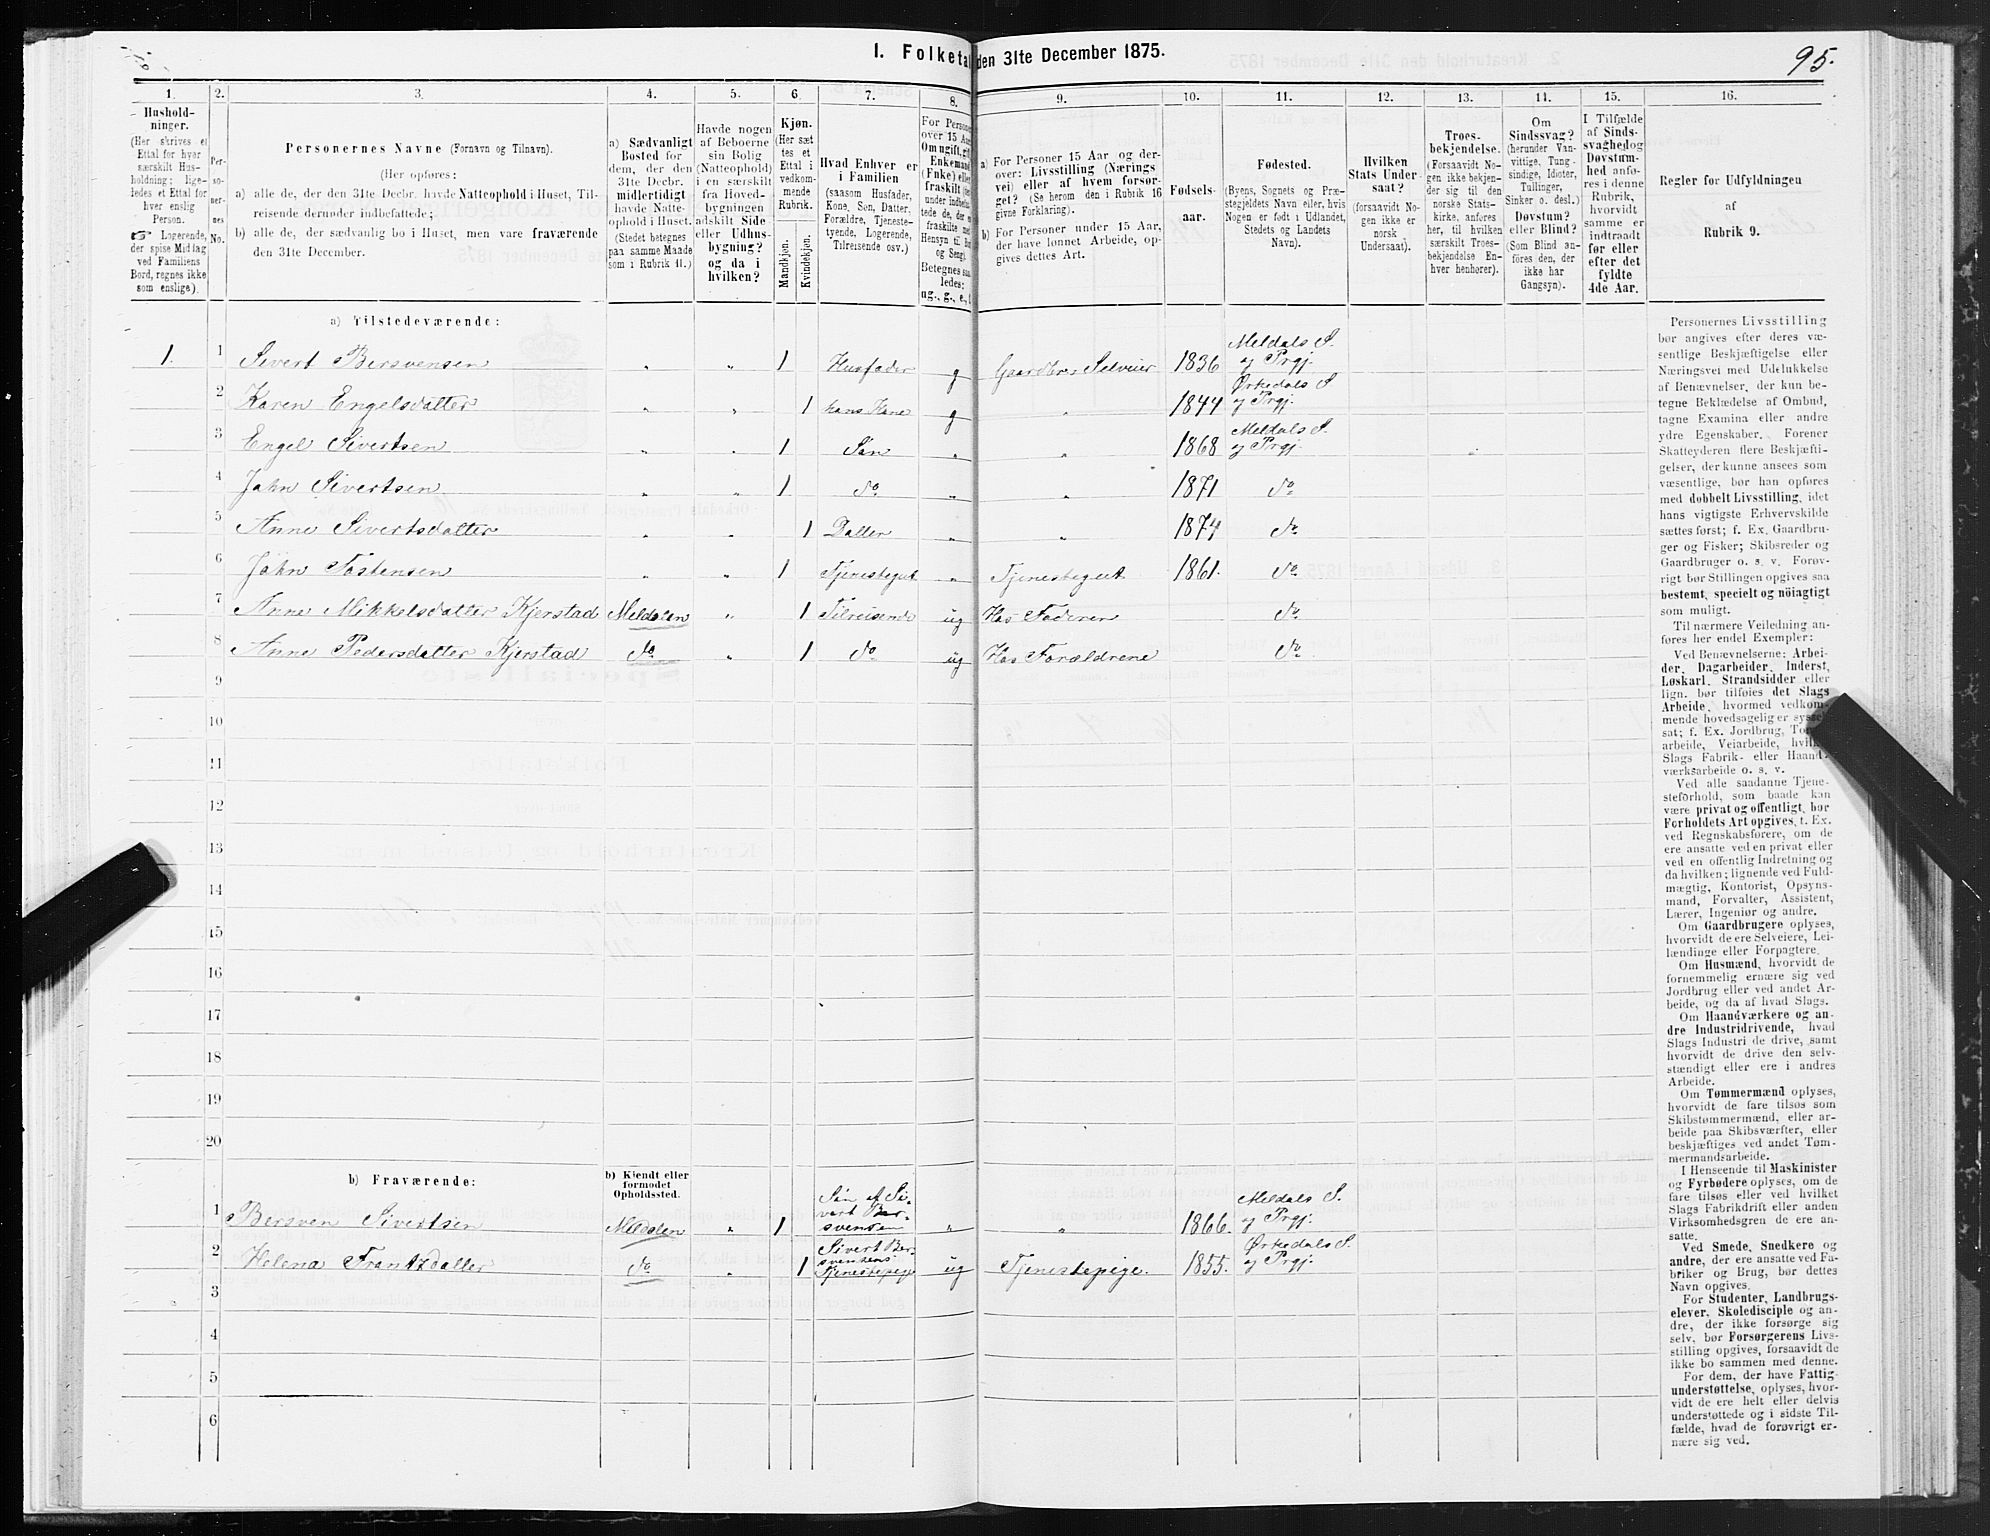 I. Folketal den 31te December 1875.
95.
1. 2. 3. 4. 5. 6. 7. 8. 9. 10. 11. 12. 13. 14. 15. 16.
Hushold-
ninger.
(Her skrives et
Ettal for hver
særskilt Hus-
holdning; lige-
ledes et Ettal for
hver enslig
Person.
☞ Logerende,
der spise Middag
ved Familiens
Bord, regnes ikke
som enslige).
Per-
so-
ner-
nes
No.
Personernes Navne (Fornavn og Tilnavn).
(Her opføres:
a) alle de, der den 31te Decbr. havde Natteophold i Huset, Til-
reisende derunder indbefattede;
b) alle de, der sædvanlig bo i Huset, men vare fraværende
den 31te December.
a) Sædvanligt
Bosted for
dem, der den
31te Decbr.
midlertidigt
havde Natte-
ophold i Huset.
(Stedet betegnes
paa samme Maade
som i Rubrik 11.)
Havde nogen
af Beboerne
sin Bolig
(Natteophold)
i en særskilt
fra Hoved-
bygningen
adskilt Side-
eller Udhus-
bygning?
og da i
hvilken?
Kjøn.
(Her sæt-
tes et
Ettal i
vedkom-
mende
Rubrik.
Mandkjøn.
Kvindekjøn.
Hvad Enhver er
i Familien
(saasom Husfader,
Kone, Søn, Datter,
Forældre, Tjeneste-
tyende, Logerende,
Tilreisende osv.)
For Personer
over 15 Aar:
Om ugift, gift,
Enkemand
(Enke) eller
fraskilt
Betegnes saa-
ledes:
ug., g., e.,
a) For Personer 15 Aar og der-
over: Livsstilling (Nærings-
vei) eller af hvem forsør-
get? (Se herom den i Rubrik 16
givne Forklaring).
b) For Personer under 15 Aar,
der have lønnet Arbeide, op-
gives dettes Art.
Fødsels-
aar.
Fødested.
(Byens, Sognets og Præ-
stegjeldets Navn eller, hvis
Nogen er født i Udlandet,
Stedets og Landets
Navn).
Hvilken
Stats Under-
saat?
(forsaavidt No-
gen ikke er
norsk
Undersaat).
Troes-
bekjendelse.
(Forsaavidt No-
gen ikke bekjen-
der sig til den
norske Stats-
kirke, anføres
her, til hvilken
særskilt Troes-
bekjendelse En-
hver henhører).
Om
Sindssvag?
(herunder Van-
vittige, Tung-
sindige, Idioter,
Tullinger,
Sinker o. desl.)
Døvstum?
eller Blind?
(Som Blind an-
føres den, der
ikke har
Gangsyn).
I Tilfælde
af Sinds-
svaghed og
Døvstum-
hed anfø-
res i denne
Rubrik,
hvorvidt
samme er
indtraadt
før eller
efter det
fyldte
4de Aar.
Regler for Udfyldningen
af
Rubrik 9.
a) Tilstedeværende:
1. 1 Sivert Bersvensen " " 1 Husfader g Gaardbr. Selveier 1836 Meldals S. og Prgj.
2 Karen Engelsdatter " " 1 hans Kone g " 1844 Ørkedals S. og Prgj.
3 Engel Sivertsen " " 1 Søn " " 1868 Meldals S. og Prgj.
4 John Sivertsen " " 1 do " " 1871 do
5 Anne Sivertsdatter " " 1 Datter " " 1874 do
6 John Tostensen " " 1 Tjenestegut " Tjenestegut 1861. do
7 Anne Mikkelsdatter Kjerstad Meldalen " 1 Tilreisende ug Hos Faderen do
8 Anne Pedersdatter Kjerstad do " 1 do ug Hos Forældrene do
9
10
11
12
13
14
15
16
17
18
19
20
b) Fraværende:
b) Kjendt eller
formodet
Opholdssted.
1 Bersven Sivertsen Meldalen " 1 Søn af Sivert Bersvensen " " 1866. Meldals S. og Prgj.
2 Helena Frantzdatter do " 1 Sivert Bersvensens Tjenestepige ug Tjenestepige. 1855. Ørkedals S. og Prgj.
3
4
5
6
Personernes Livsstilling
bør angives efter deres væ-
sentlige Beskjæftigelse eller
Næringsvei med Udelukkelse
af Benævnelser, der kun be-
tegne Beklædelse af Ombud,
tagne Examina eller andre
ydre Egenskaber. Forener
Skatteyderen flere Beskjæfti-
gelser, der kunne ansees som
væsentlige, bør han opføres
med dobbelt Livsstilling, idet
hans vigtigste Erhvervskilde
sættes først; f. Ex. Gaardbru-
ger og Fisker; Skibsreder og
Gaardbruger o. s. v. Forøv-
rigt bør Stillingen opgives saa
bestemt, specielt og nöiagtigt
som muligt.
Til nærmere Veiledning an-
føres her endel Exempler:
Ved Benævnelserne: Arbei-
der, Dagarbeider, Inderst,
Løskarl, Strandsidder eller
lign. bør tilføies det Slags
Arbeide, hvormed vedkom-
mende hovedsagelig er syssel-
sat; f. Ex. Jordbrug,
arbeide, Veiarbeide, hvilket
Slags Fabrik- eller Haand-
værksarbeide o. s. v.
Ved alle saadanne Tjene-
steforhold, som baade kan
være privat og offentligt, bør
Forholdets Art opgives, t. Ex.
ved Regnskabsførere, om de
ere ansatte ved en privat eller
ved en offentlig Indretning og
da hvilken; lignende ved Fuld-
mægtig, Kontorist, Opsyns-
mand, Forvalter, Assistent,
Lærer, Ingeniør og andre.
Om Gaardbrugere oplyses,
hvorvidt de ere Selveiere, Lei-
lændinge eller Forpagtere.
Om Husmænd, hvorvidt de
fornemmelig ernære sig ved
Jordbrug eller ved andet Ar-
beide, og da af hvad Slags.
Om Haandværkere og an-
dre Industridrivende, hvad
Slags Industri de drive, samt
hvorvidt de drive den selv-
stændigt eller ere i andres
Arbeide.
Om Tømmermænd oplyses,
hvorvidt de fare tilsøs som
Skibstømmermænd, eller ar-
beide paa Skibsværfter, eller
beskjæftiges ved andet Tøm-
mermandsarbeide.
I Henseende til Maskinister
og Fyrbødere oplyses, om de
fare tilsøs eller ved hvilket
Slags Fabrikdrift eller anden
Virksomhedsgren de ere an-
satte.
Ved Smede, Snedkere og
andre, der ere ansatte ved Fa-
briker og Brug, bør dettes
Navn opgives.
For Studenter, Landbrugs-
elever, Skoledisciple og an-
dre, der ikke forsørge sig
selv, bør Forsørgerens Livs-
stilling opgives, forsaavidt de
ikke bo sammen med denne.
For dem, der have Fattig-
understøttelse, oplyses, hvor-
vidt de ere helt eller delvis
understøttede og i sidste Til-
fælde, hvad de forøvrigt er-
nære sig ved.